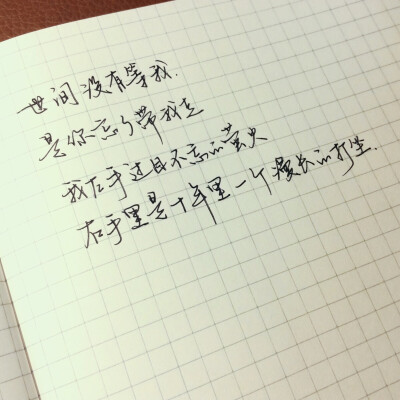 世间没有等我.
是你忘了带我走
我左手过目不忘的萤火
右手里是十年里一个漫长的打坐.